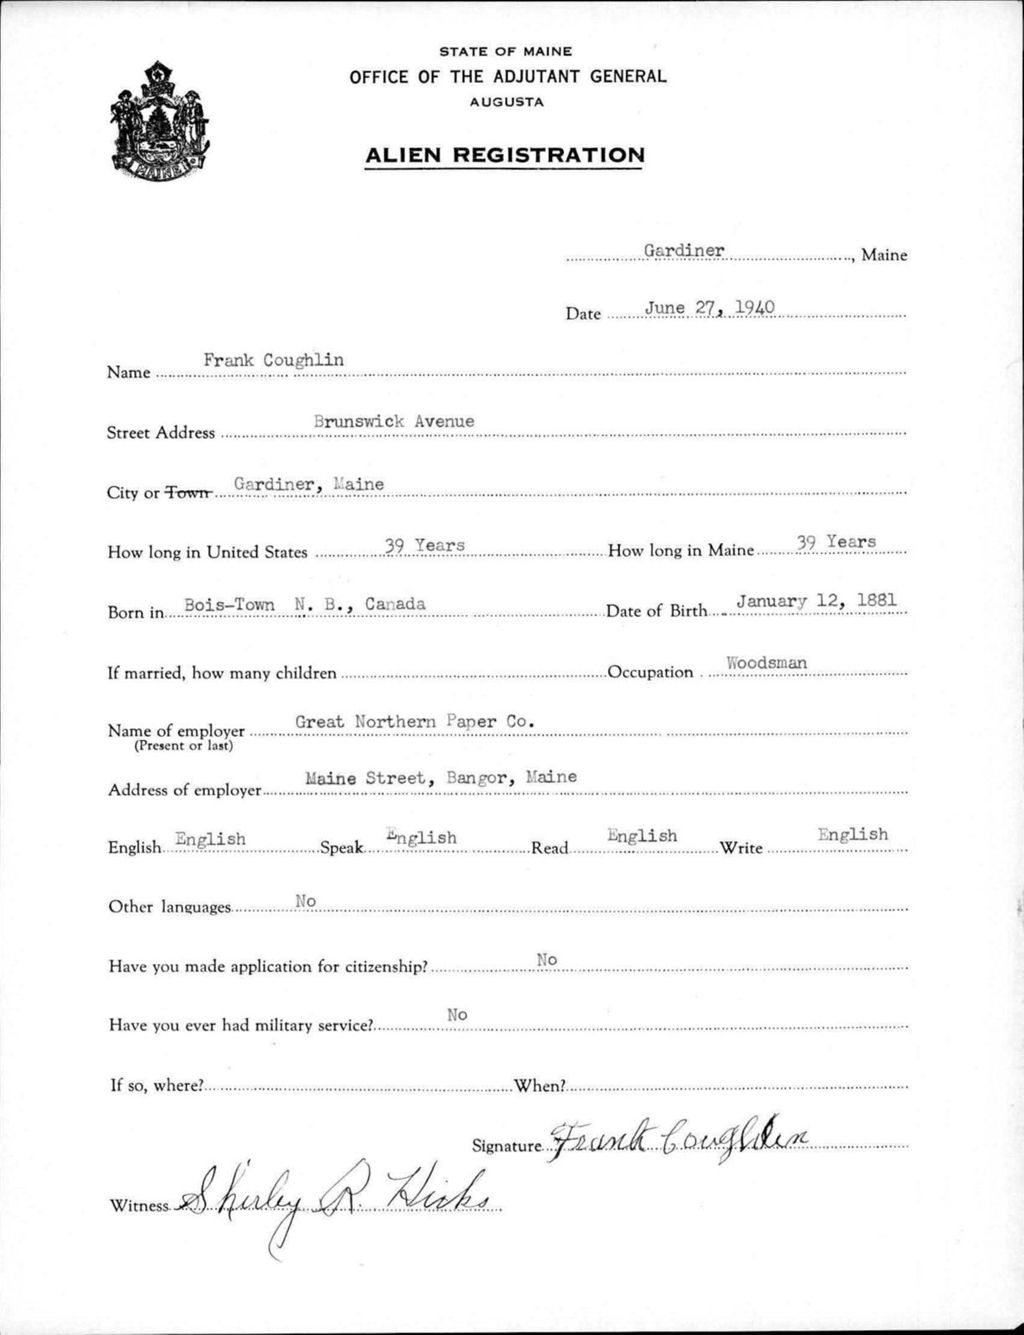 STATE OF MAINE
OFFICE OF THE ADJUTANT GENERAL
AUGUSTA
ALIEN REGISTRATION
MAINE
Gardiner, Maine
Date June 27, 1940
Name Frank Coughlin
Street Address Brunswick Avenue
City or Town Gardiner, Maine
How long in United States 39 Years How long in Maine 39 Years
Born in Bois-Town N. B., Canada Date of Birth January 12, 1881
If married, how many children Occupation Woodsman
Name of employer Great Northern Paper Co.
(Present or last)
Address of employer Maine Street, Bangor, Maine
English English Speak English Read English Write English
Other languages No
Have you made application for citizenship? No
Have you ever had military service? No
If so, where? When?
Signature Frank Coughlin
Witness Shirley R. Hicks